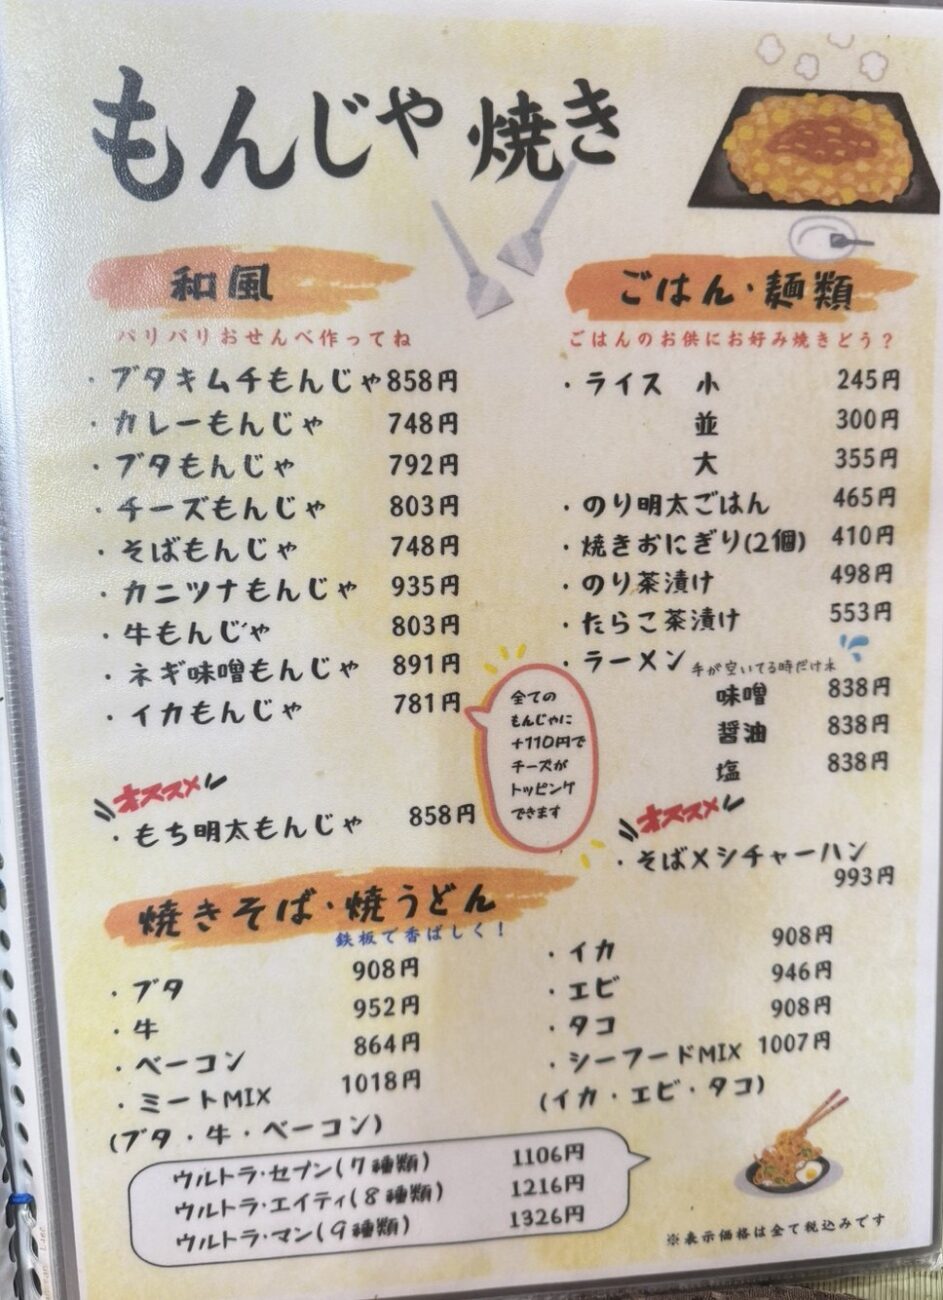 もんじゃ焼き
和風
パリパリおせんべ作ってね
・ブタキムチもんじゃ 858円
・カレーもんじゃ 748円
・ブタもんじゃ 792円
・チーズもんじゃ 803円
・そばもんじゃ 748円
・カニツナもんじゃ 935円
・牛もんじゃ 803円
・ネギ味噌もんじゃ 891円
・イカもんじゃ 781円
全ての
もんじゃに
+110円で
チーズが
トッピング
できます
オススメ
・もち明太もんじゃ 858円
ごはん・麺類
ごはんのお供にお好み焼きどう?
・ライス 小 245円
並 300円
大 355円
・のり明太ごはん 465円
・焼きおにぎり(2個) 410円
・のり茶漬け 498円
・たらこ茶漬け 553円
・ラーメン 手が空いてる時だけ
味噌 838円
醤油 838円
塩 838円
オススメ
・そばメシチャーハン
993円
焼きそば・焼うどん
鉄板で香ばしく!
・ブタ 908円
・牛 952円
・ベーコン 864円
・ミートMIX 1018円
(ブタ・牛・ベーコン)
・イカ 908円
・エビ 946円
・タコ 908円
・シーフードMIX 1007円
(イカ・エビ・タコ)
ウルトラ・セブン(7種類) 1106円
ウルトラ・エイティ(8種類) 1216円
ウルトラ・マン(9種類) 1326円
※表示価格は全て税込みです